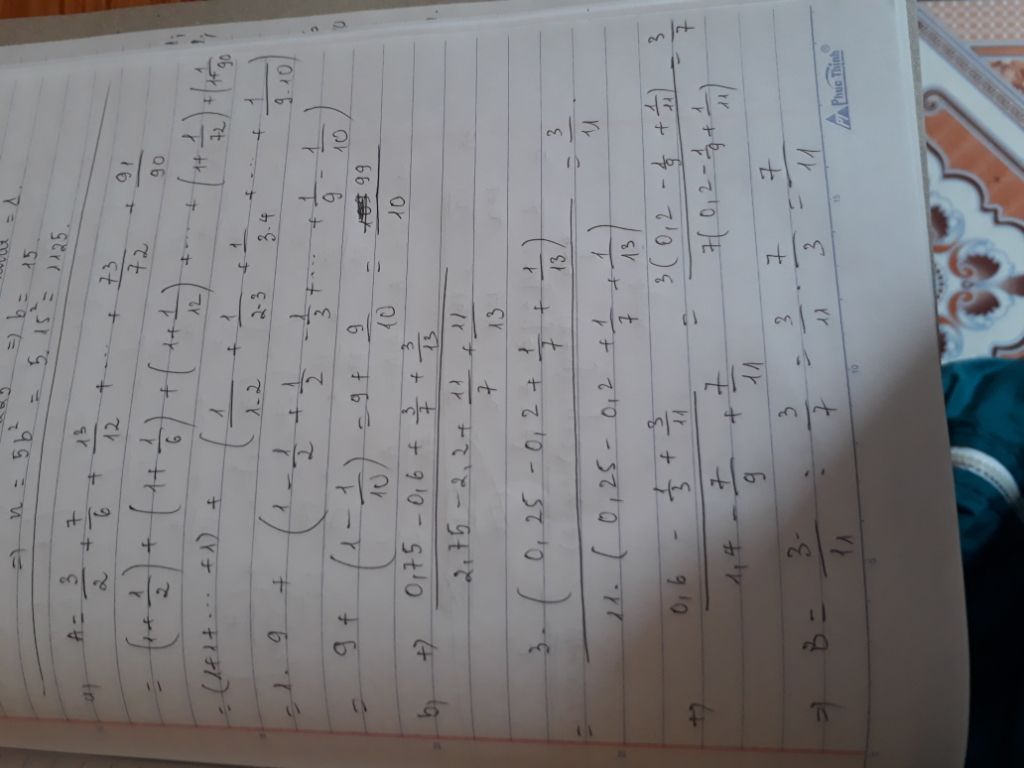 =) n = 5b² =) b = 15
= 5. 15² = 1125
a) A = 3/2 + 7/6 + 13/12 + ... + 73/72 + 91/90
= (1+1/2) + (1+1/6) + (1+1/12) + ... + (1+1/72) + (1+1/90
= (1+1+...+1) + (1/1.2 + 1/23 + 1/3.4 + ... + 1/9.10)
= 1. 9 + (1 - 1/2 + 1/2 - 1/3 + ... + 1/9 - 1/10)
= 9 + (1 - 1/10) = 9 + 9/10 = 99/10
b) +) 0,75 - 0,6 + 3/7 + 3/13
2,75 - 2,2 + 11/7 + 11/13
= 3. (0,25 - 0,2 + 1/7 + 1/13) = 3/11
11. (0,25 - 0,2 + 1/7 + 1/13)
+) 0,6 - 1/3 + 3/11 = 3(0,2 - 1/9 + 1/11) = 3/7
1,4 - 7/9 + 7/11 7(0,2 - 1/9 + 1/11)
=) B = 3/11 : 3/7 = 3/11 . 7/3 = 7/11
Phúc Thịnh®